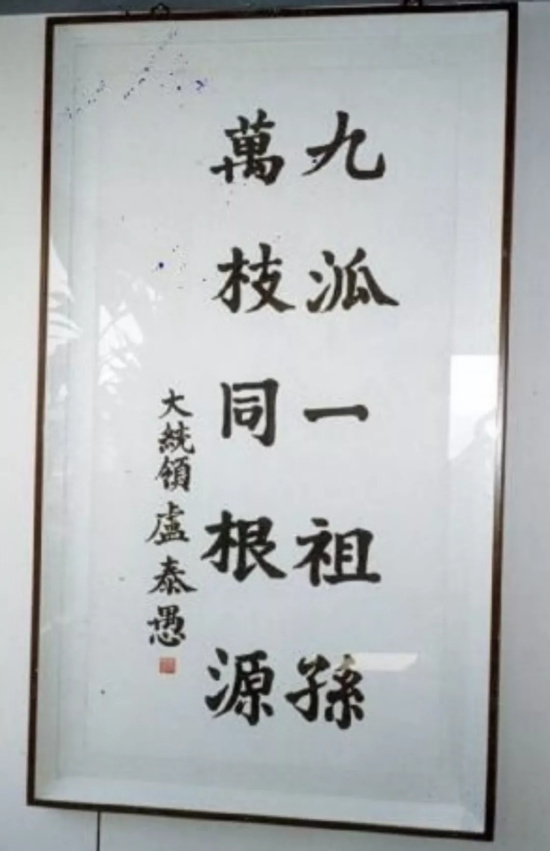 九泒一祖孫
萬枝同根源
大統領 盧泰愚